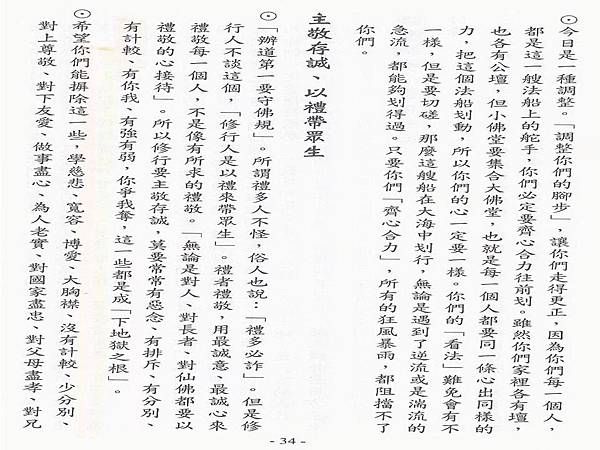 ⊙今日是一種調整。「調整你們的腳步」，讓你們走得更正，因為你們每一個人，
都是這一艘法船上的舵手，你們必定要齊心合力往前划。雖然你們家裡各有壇，
也各有公壇，但小佛堂要集合大佛堂，也就是每一個人都要同一條心出同樣的
力，把這個法船划動，所以你們的心一定要一樣。你們的「看法」難免會有不
一樣，但是要切磋，那麼這艘船在大海中划行，無論是遇到了逆流或是湍流的
急流，都能夠划得過。只要你們「齊心合力」，所有的狂風暴雨，都阻擋不了
你們。
主敬存誠、以禮帶眾生
⊙「辦道第一要守佛規」。所謂禮多人不怪，俗人也說：「禮多必詐」。但是修
行人不談這個，「修行人是以禮來帶眾生」。禮者禮敬，用最誠意、最誠心來
禮敬每一個人，不是像有所求的禮敬。「無論是對人、對長者、對仙佛都要以
禮敬的心接待」。所以修行要主敬存誠，莫要常常有惡念、有排斥、有分別、
有計較、有你我、有強有弱，你爭我奪，這一些都是成「下地獄之根」。
⊙希望你們能摒除這一些，學慈悲、寬容、博愛、大胸襟、沒有計較、少分別、
對上尊敬、對下友愛、做事盡心、為人老實、對國家盡忠、對父母盡孝、對兄
- 34 -